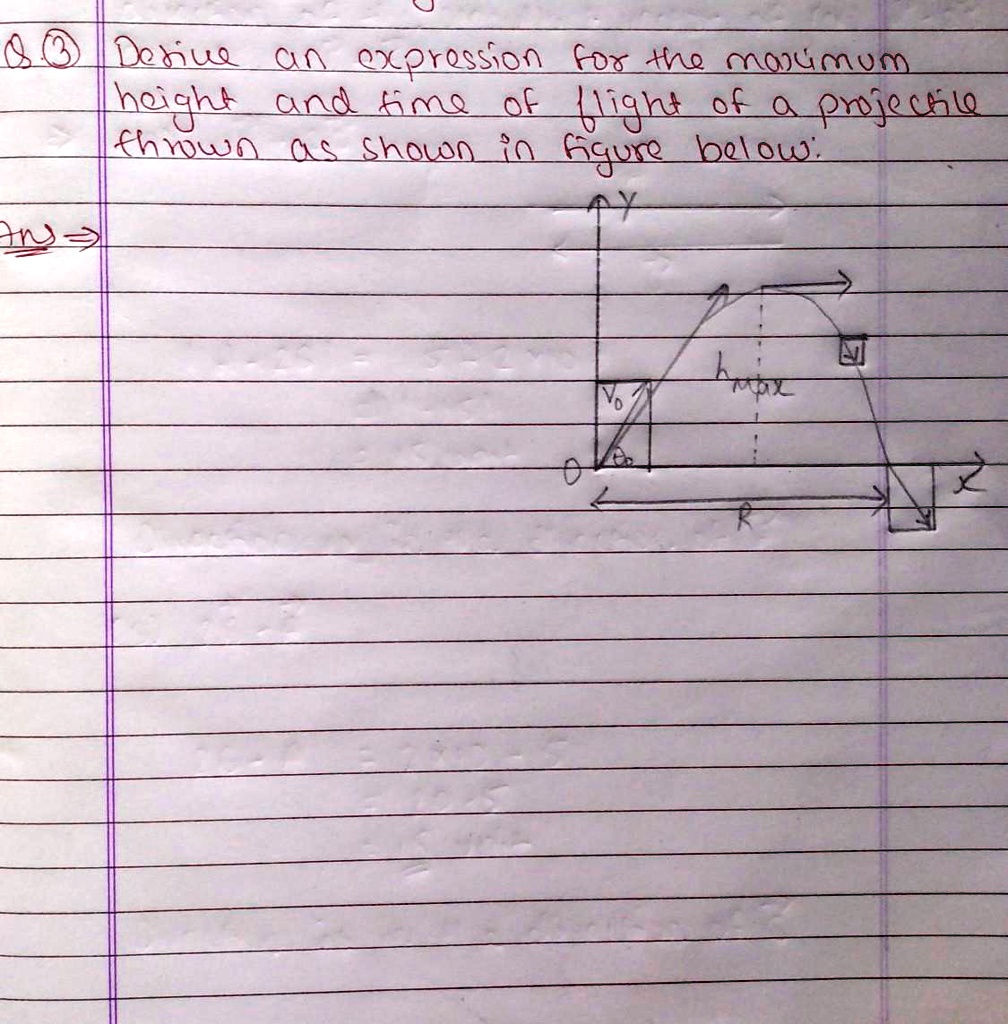 Q.③ Derive an expression for the maximum
height and time of flight of a projectile
thrown as shown in figure below:
Y
Ans ⇒
hmax
V₀
θ₀
O
X
R